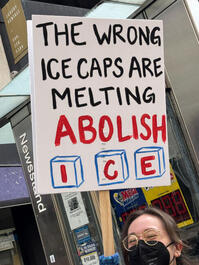 THE WRONG
ICE CAPS ARE
MELTING
ABOLISH
ICE
Newsstand